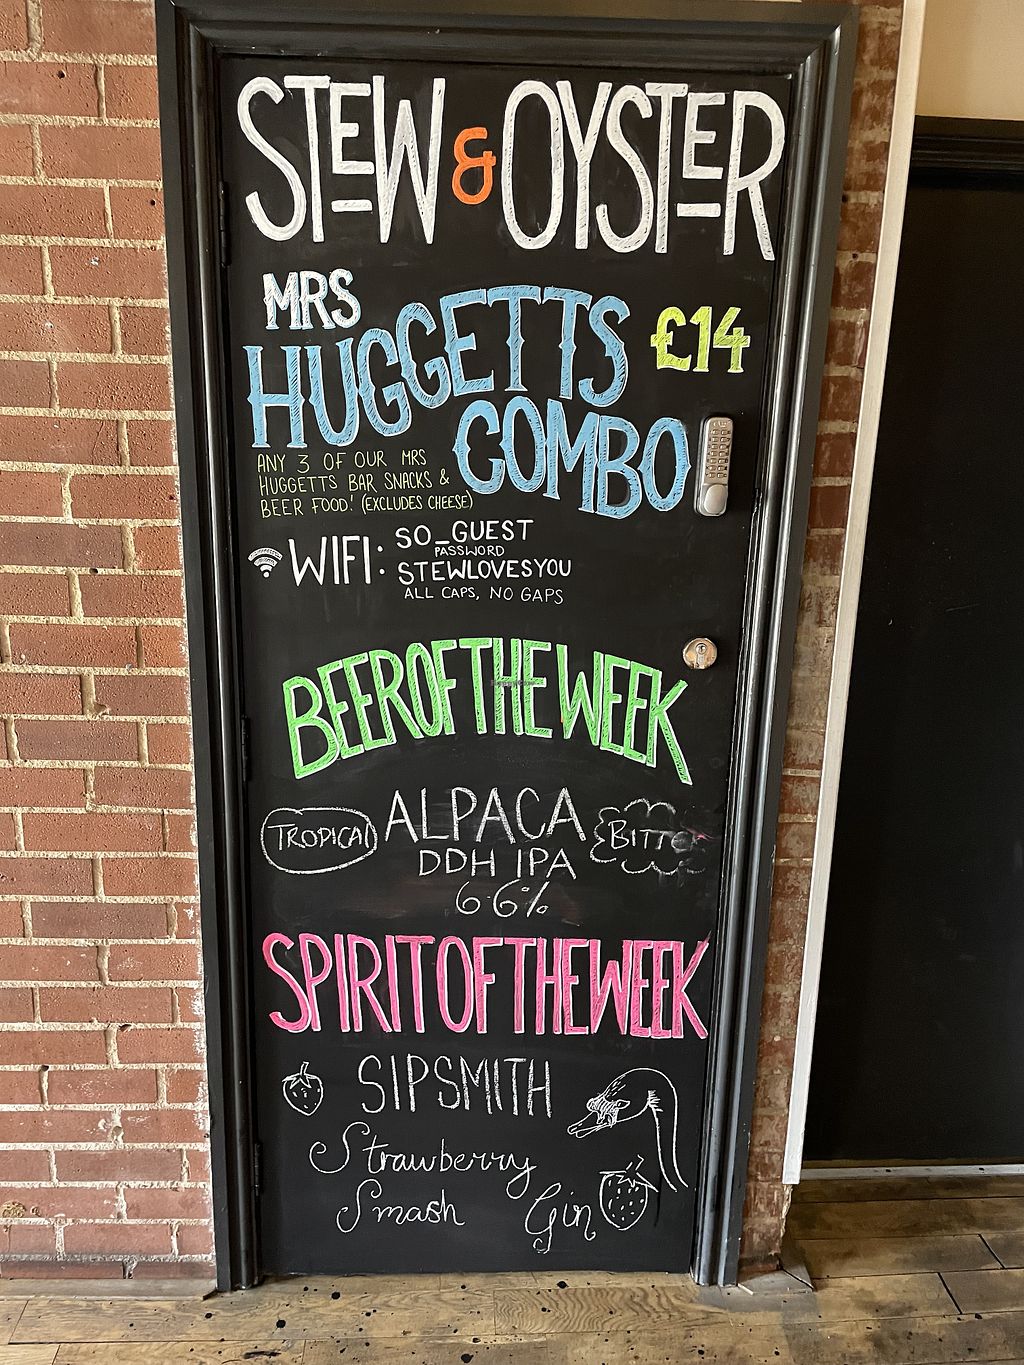 STEW & OYSTER
MRS
HUGGETTS
£14
COMBO
ANY 3 OF OUR MRS
HUGGETTS BAR SNACKS &
BEER FOOD! (EXCLUDES CHEESE)
WIFI: SO_GUEST
PASSWORD
STEWLOVESYOU
ALL CAPS, NO GAPS
BEER OF THE WEEK
TROPICAL ALPACA
DDH IPA
6.6%
SPIRIT OF THE WEEK
SIPSMITH
Strawberry
Smash Gin